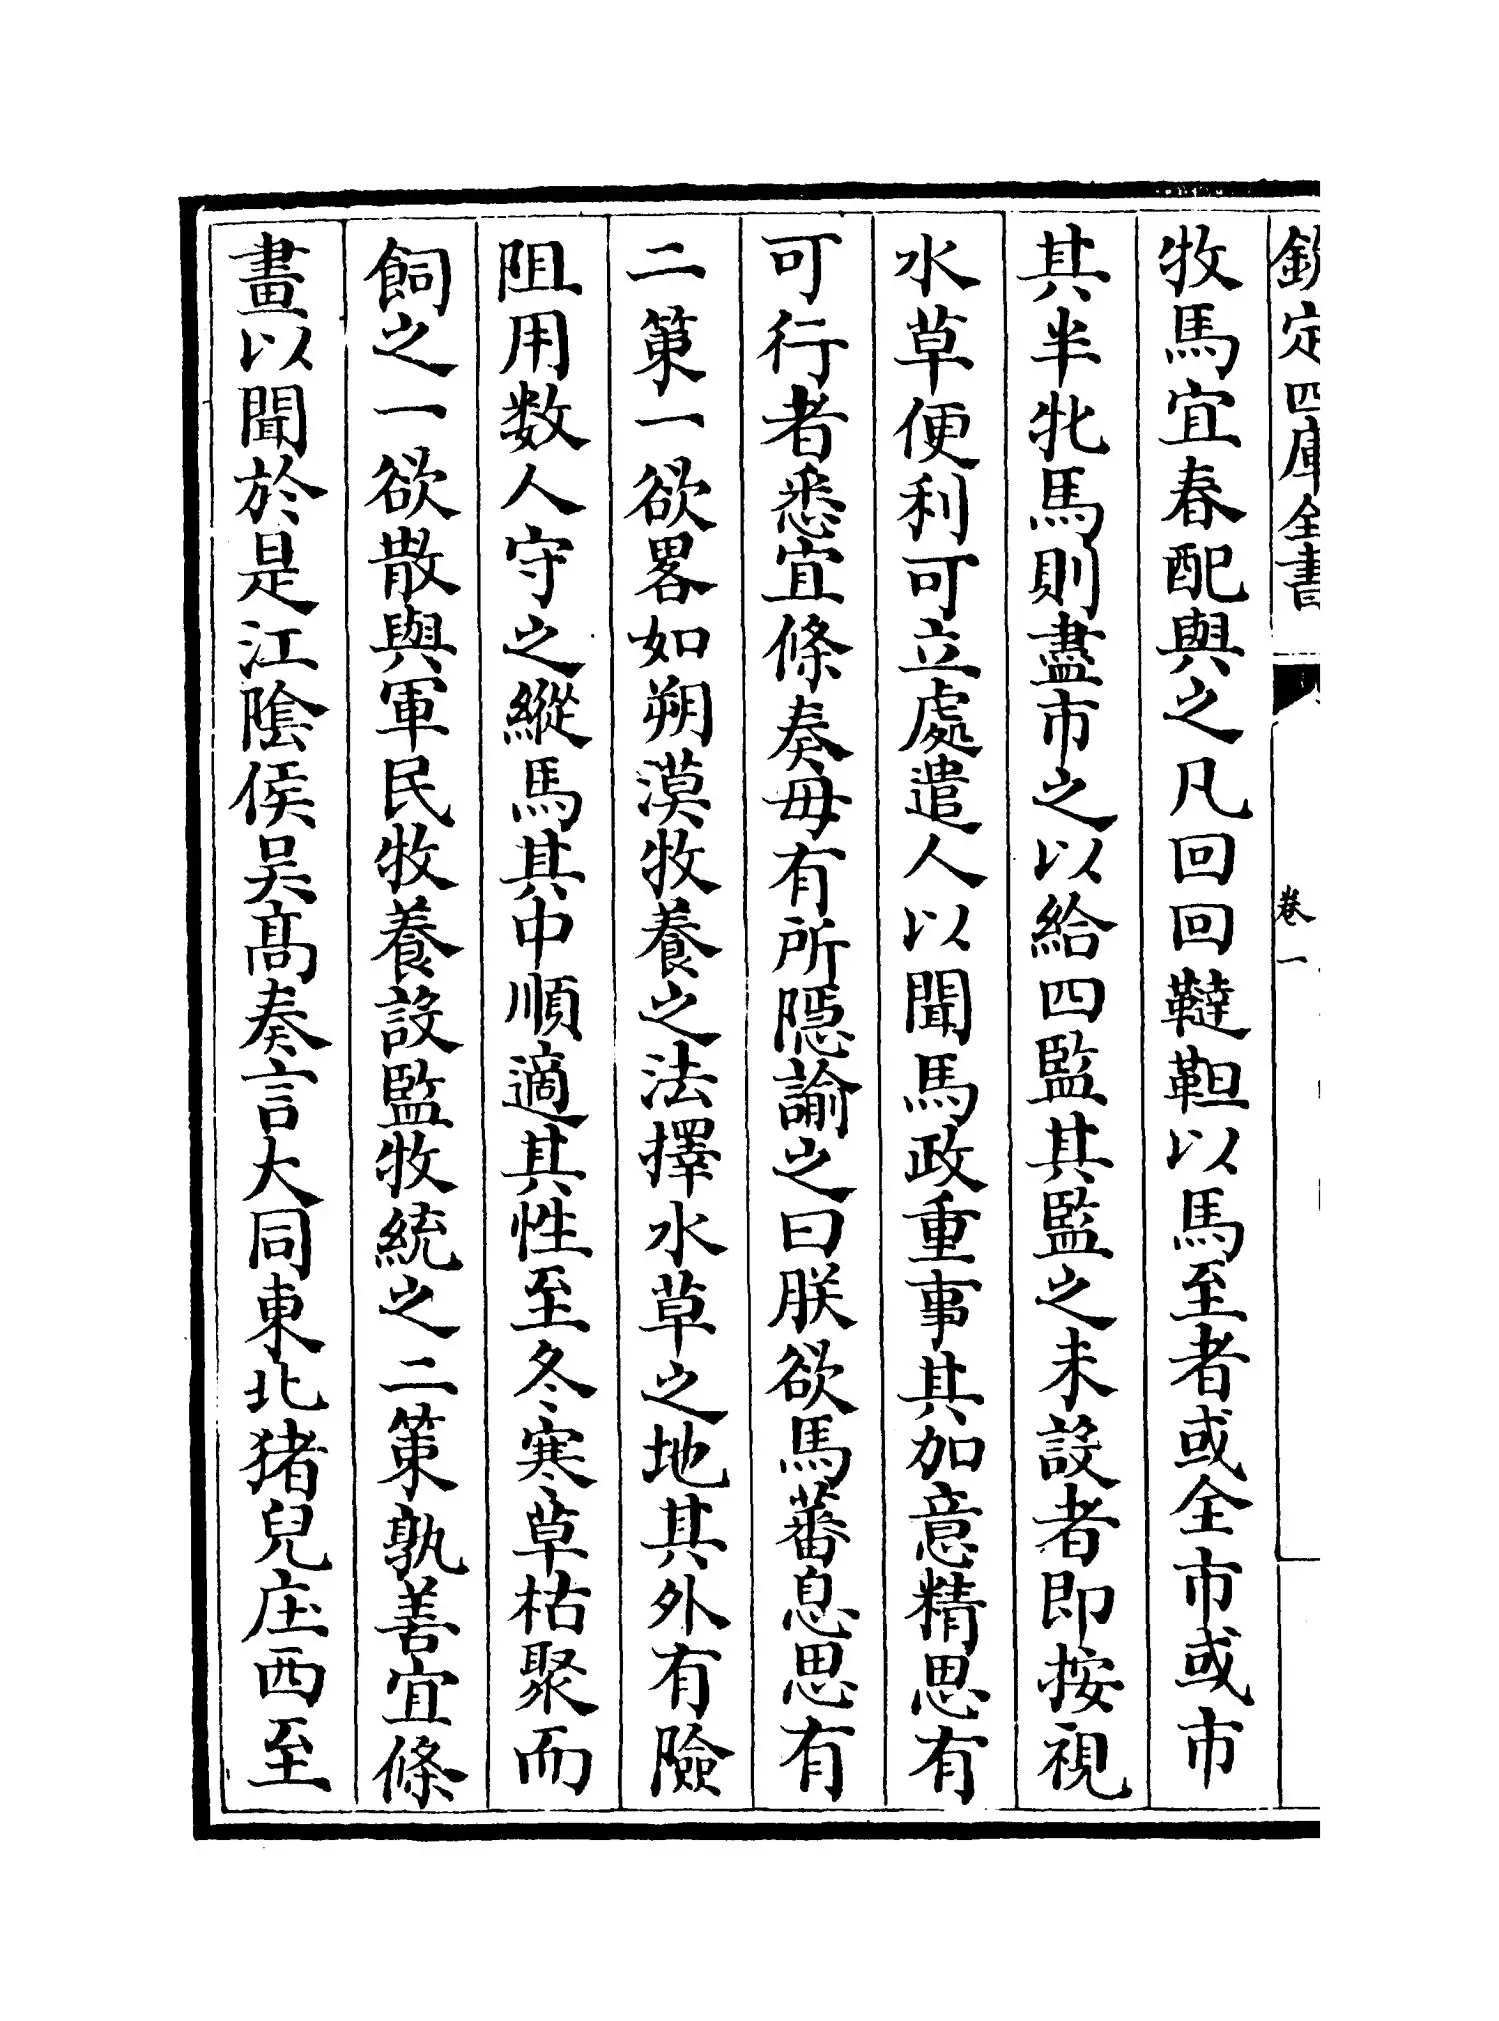 欽定四庫全書
卷一
牧馬宜春配與之凡回回韃靼以馬至者或全市或市
其半牝馬則盡市之以給四監其監之未設者即按視
水草便利可立處遣人以聞馬政重事其加意精思有
可行者悉宜條奏毋有所隱諭之曰朕欲馬蕃息思有
二策一欲畧如朔漠牧養之法擇水草之地其外有險
阻用数人守之縱馬其中順適其性至冬寒草枯聚而
飼之一欲散與軍民牧養設監牧統之二策孰善宜條
畫以聞於是江隂侯吳髙奏言大同東北猪兒庄西至